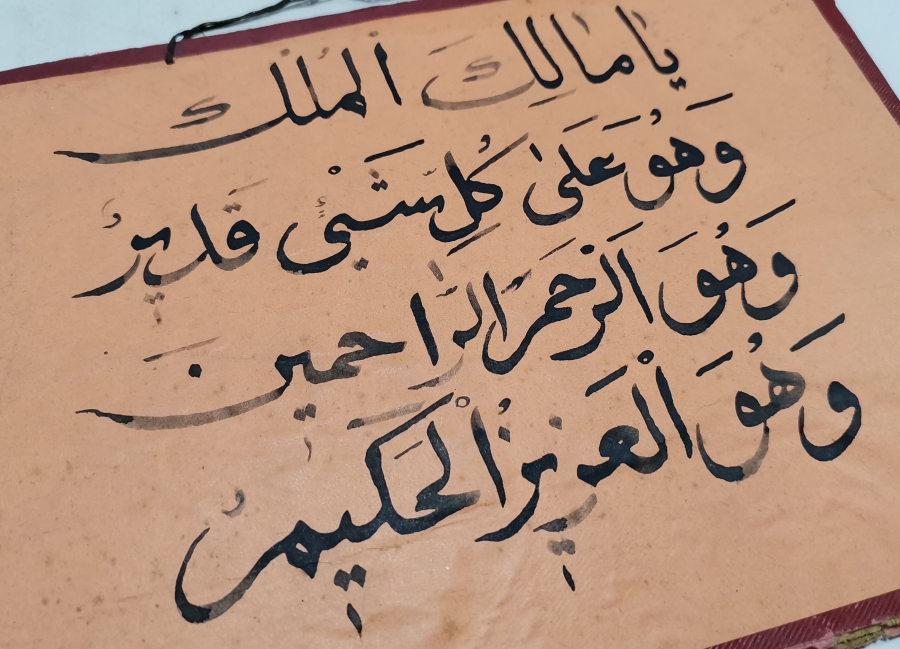 يا مالكَ الملك
وَهُوَ عَلىٰ كُلِّ شَيْءٍ قَديرُ
وَهُوَ اَرْحَمُ الرَّاحِمينَ
وَهُوَ الْعَزيزُ الْحَكيمُ